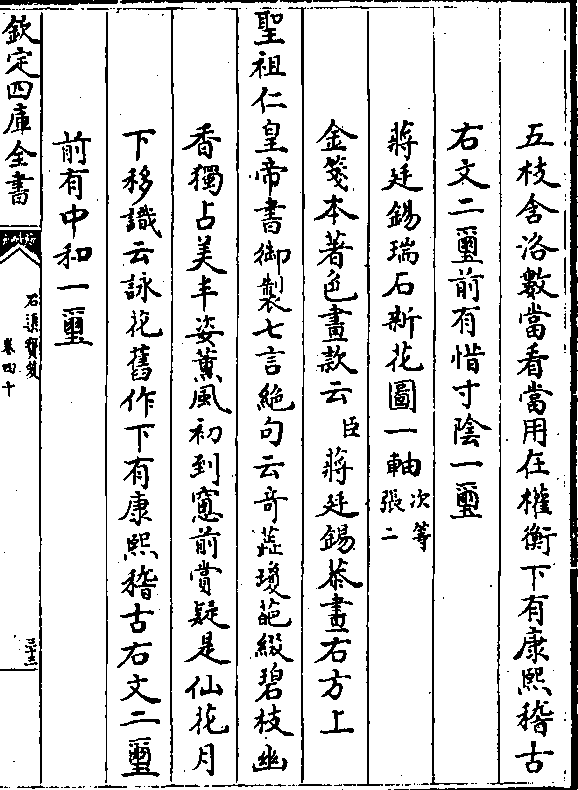 五枝含洛數當看當用在權衡下有康熙稽古
右文二璽前有惜寸陰一璽
蔣廷錫瑞石新花圖一軸次等張二
金箋本著色畫款云臣蔣廷錫恭畫右方上
聖祖仁皇帝書御製七言絶句云奇蕋瓊葩綴碧枝幽
香獨占美丰姿薰風初到窻前賞疑是仙花月
下移識云詠花舊作下有康熙稽古右文二璽
前有中和一璽
欽定四庫全書
石渠寶笈
卷四十
三十三